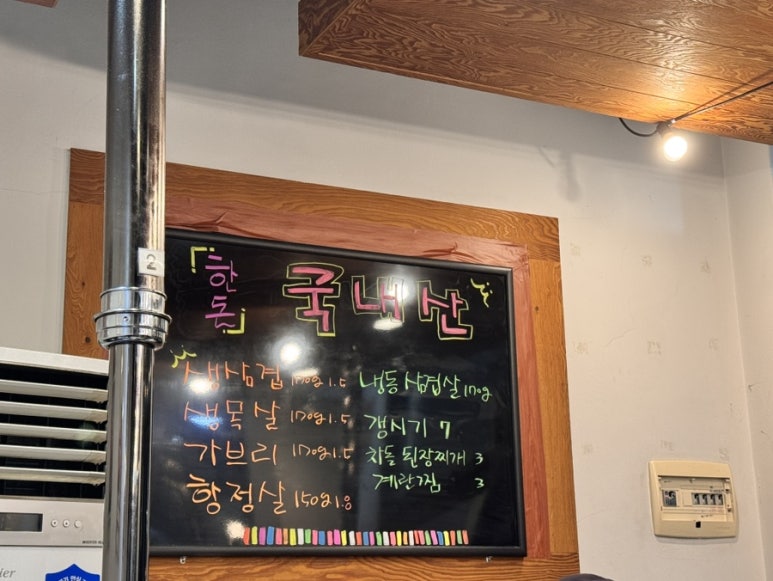 2
「한돈」 국내산
생삼겹 170g 1.5
생목살 170g 1.5
가브리 170g 1.5
항정살 150g 1.8
냉동삼겹살 170g
갱시기 7
차돌 된장찌개 3
계란찜 3